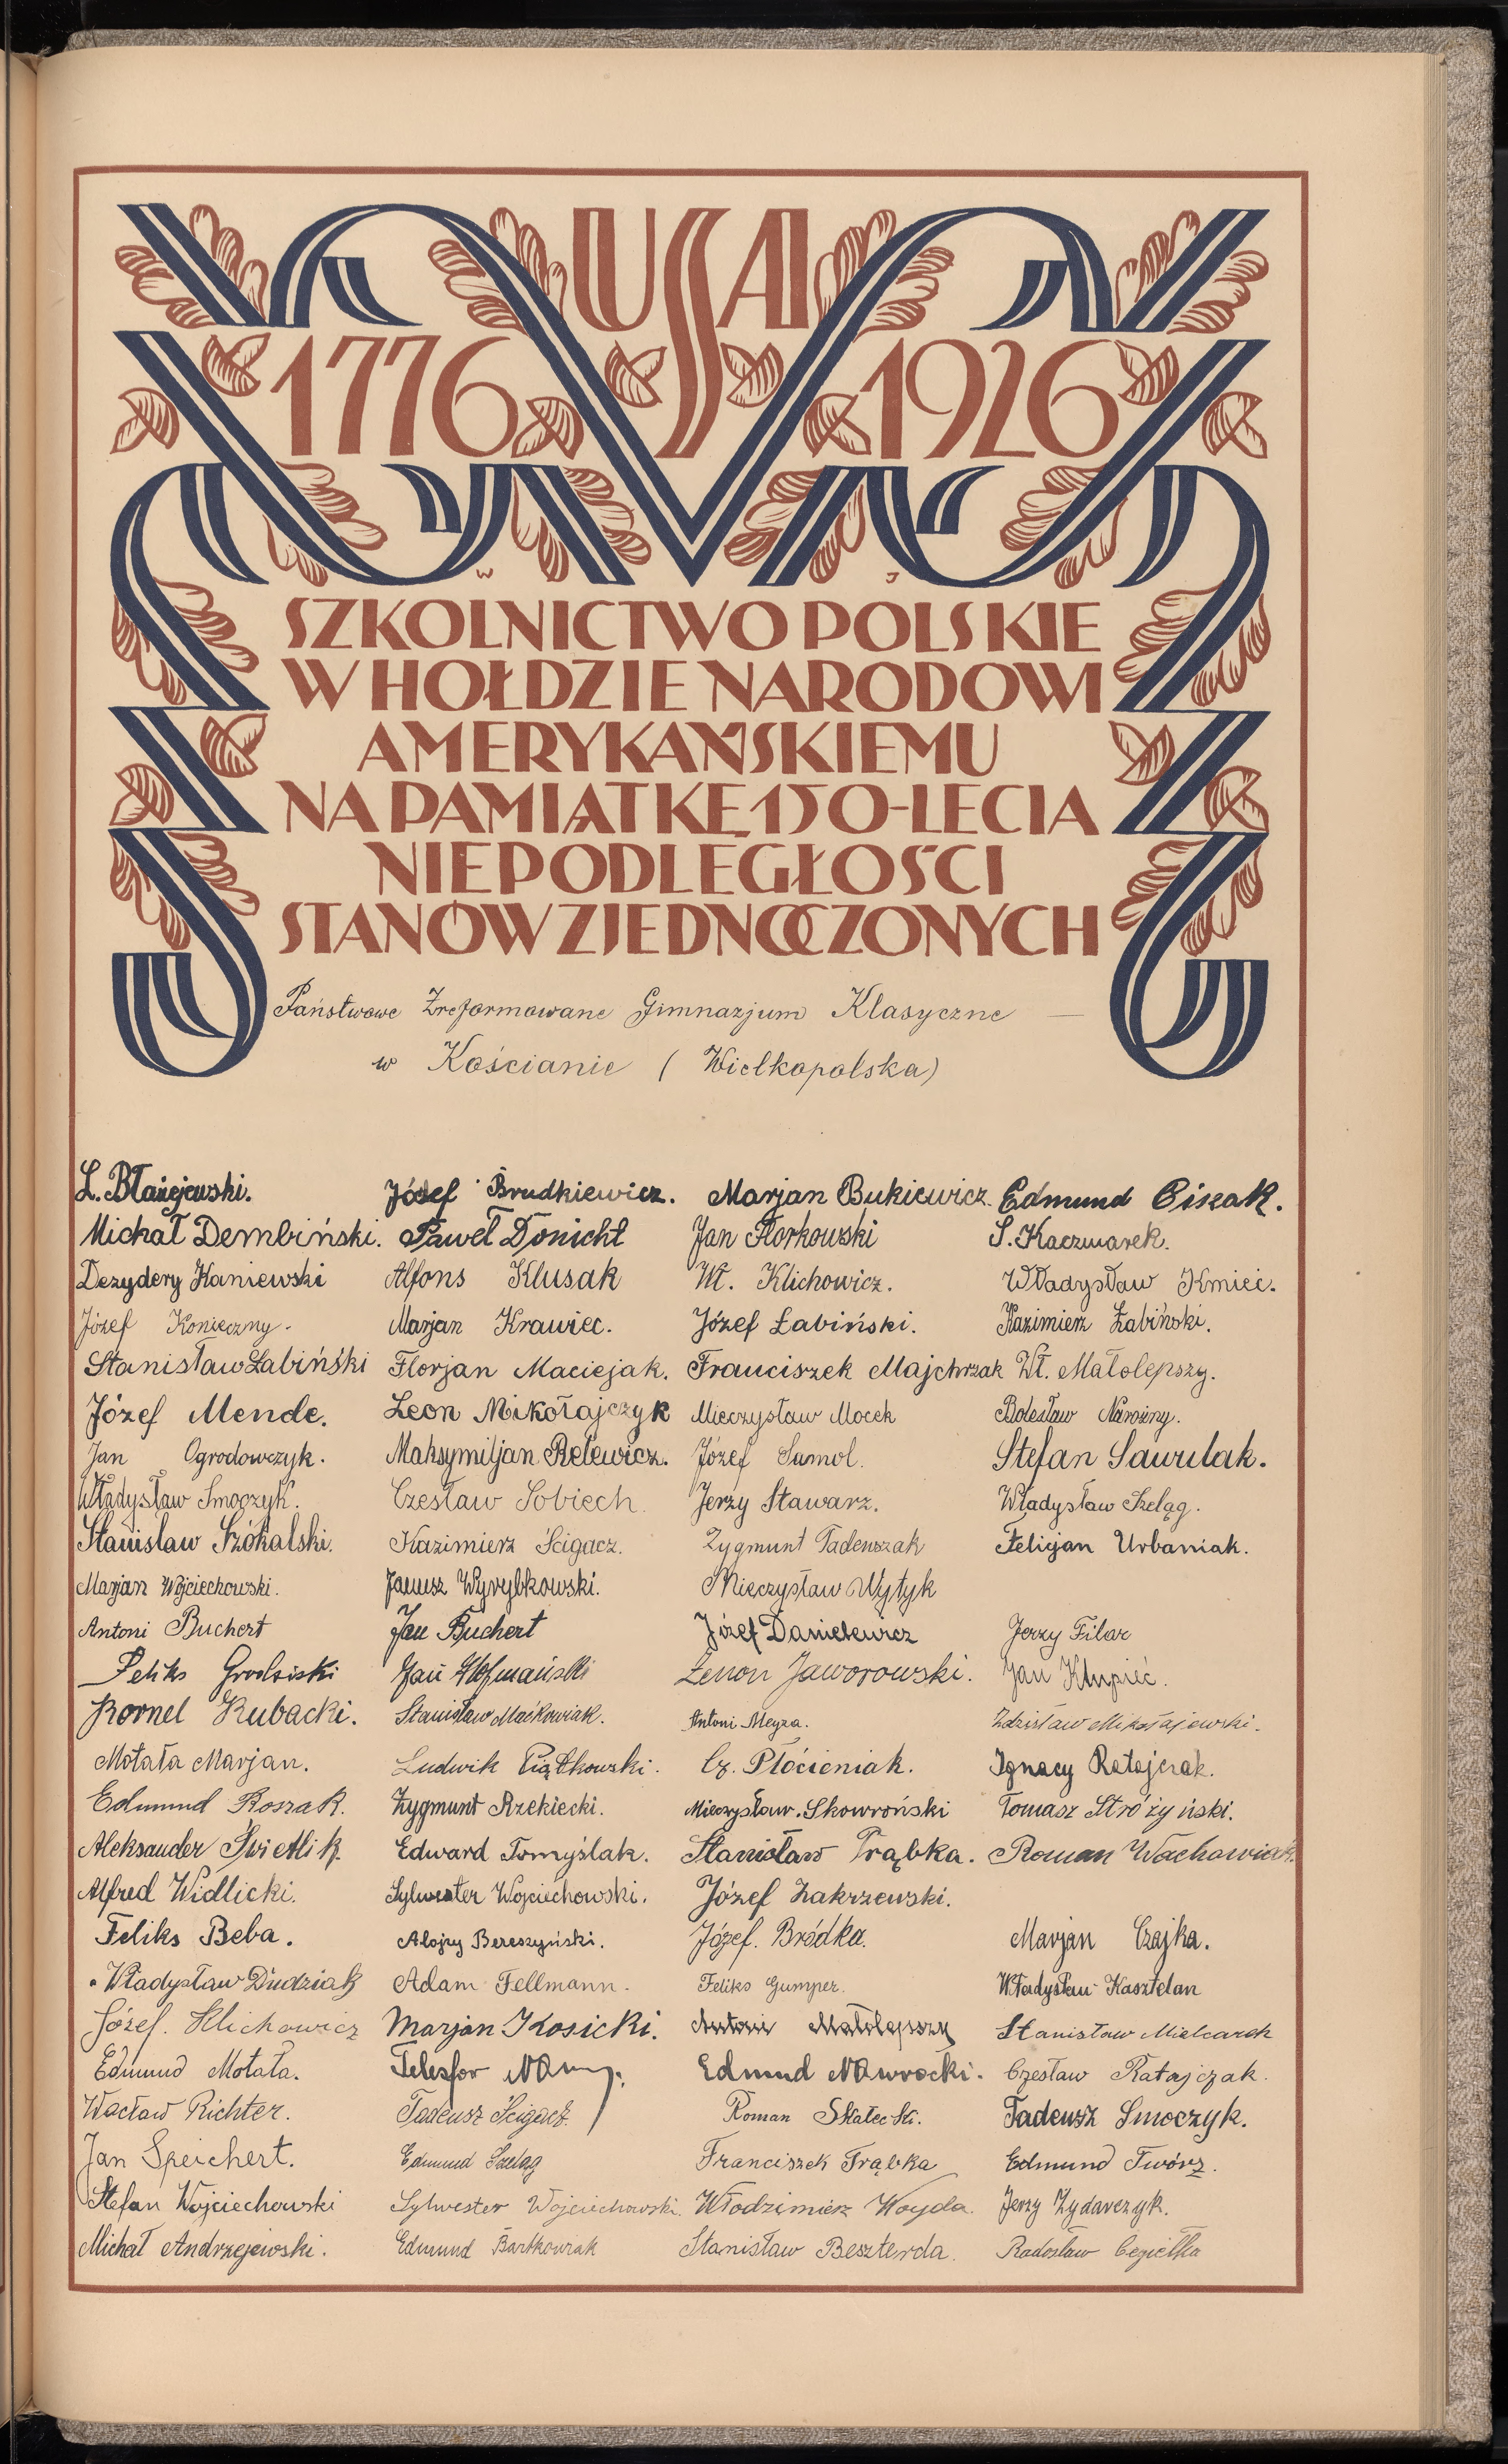 USA
1776 1926
W J
SZKOLNICTWO POLSKIE
W HOŁDZIE NARODOWI
AMERYKAŃSKIEMU
NA PAMIĄTKĘ 150-LECIA
NIEPODLEGŁOŚCI
STANÓW ZJEDNOCZONYCH
Państwowe Zreformowane Gimnazjum Klasyczne —
w Kościanie (Wielkopolska)
L. Błażejewski. Józef Brudkiewicz. Marjan Bukiewicz. Edmund Ciszak.
Michał Dembiński. Paweł Donicht Jan Florkowski S. Kaczmarek.
Dezydery Kaniewski Alfons Klusak Wł. Klichowicz. Władysław Kmieć.
Józef Konieczny. Marjan Krawiec. Józef Łabiński. Kazimierz Łabiński.
Stanisław Łabiński Florjan Maciejak. Franciszek Majchrzak Wł. Małolepszy.
Józef Mende. Leon Mikołajczyk Mieczysław Mocek Bolesław Narożny.
Jan Ogrodowczyk. Maksymiljan Relewicz. Józef Samol. Stefan Sawulak.
Władysław Smoczyk. Czesław Sobiech. Jerzy Stawarz. Władysław Szeląg.
Stanisław Szókalski. Kazimierz Ścigacz. Zygmunt Tadeuszak Felicjan Urbaniak.
Marjan Wojciechowski. Janusz Wyrybkowski. Mieczysław Wytyk
Antoni Buchert Jan Buchert Józef Danielewicz Jerzy Filar
Feliks Grodziski Jan Hofmański Zenon Jaworowski. Jan Klupieć.
Kornel Kubacki. Stanisław Maćkowiak. Antoni Meyza. Zdzisław Mikołajewski.
Motała Marjan. Ludwik Piątkowski. Cz. Płócieniak. Ignacy Ratajczak.
Edmund Roszak. Zygmunt Rzekiecki. Mieczysław Skowroński Tomasz Stróżyński.
Aleksander Świetlik. Edward Tomyślak. Stanisław Trąbka. Roman Wachowiak.
Alfred Widlicki. Sylwester Wojciechowski. Józef Zakrzewski.
Feliks Beba. Alojzy Bereszyński. Józef Bródka. Marjan Czajka.
Władysław Dudziak Adam Fellmann. Feliks Gumper. Władysław Kasztelan
Józef Klichowicz Marjan Kosicki. Antoni Małolepszy Stanisław Mielcarek
Edmund Motała. Telesfor Edmund Nawrocki. Czesław Ratajczak.
Wacław Richter. Tadeusz Ścigacz. Roman Skałecki. Tadeusz Smoczyk.
Jan Speichert. Edmund Szeląg Franciszek Trąbka Edmund Twórz.
Stefan Wojciechowski Sylwester Wojciechowski. Włodzimierz Woyda. Jerzy Zydarczyk.
Michał Andrzejewski. Edmund Bartkowiak Stanisław Beszterda. Radosław Cegiełka